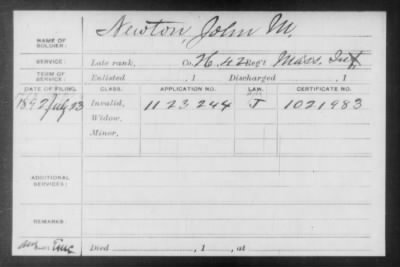 NAME OF SOLDIER: Newton John M.
SERVICE: Late rank, Co. H. 42 Reg't Mass. Inf.
TERM OF SERVICE: Enlisted , 1 Discharged , 1
DATE OF FILING. CLASS. APPLICATION NO. LAW. CERTIFICATE NO.
1892 July 13 Invalid, 1123244 J 1021983
Widow,
Minor,
ADDITIONAL SERVICES:
REMARKS:
Died , 1 , at